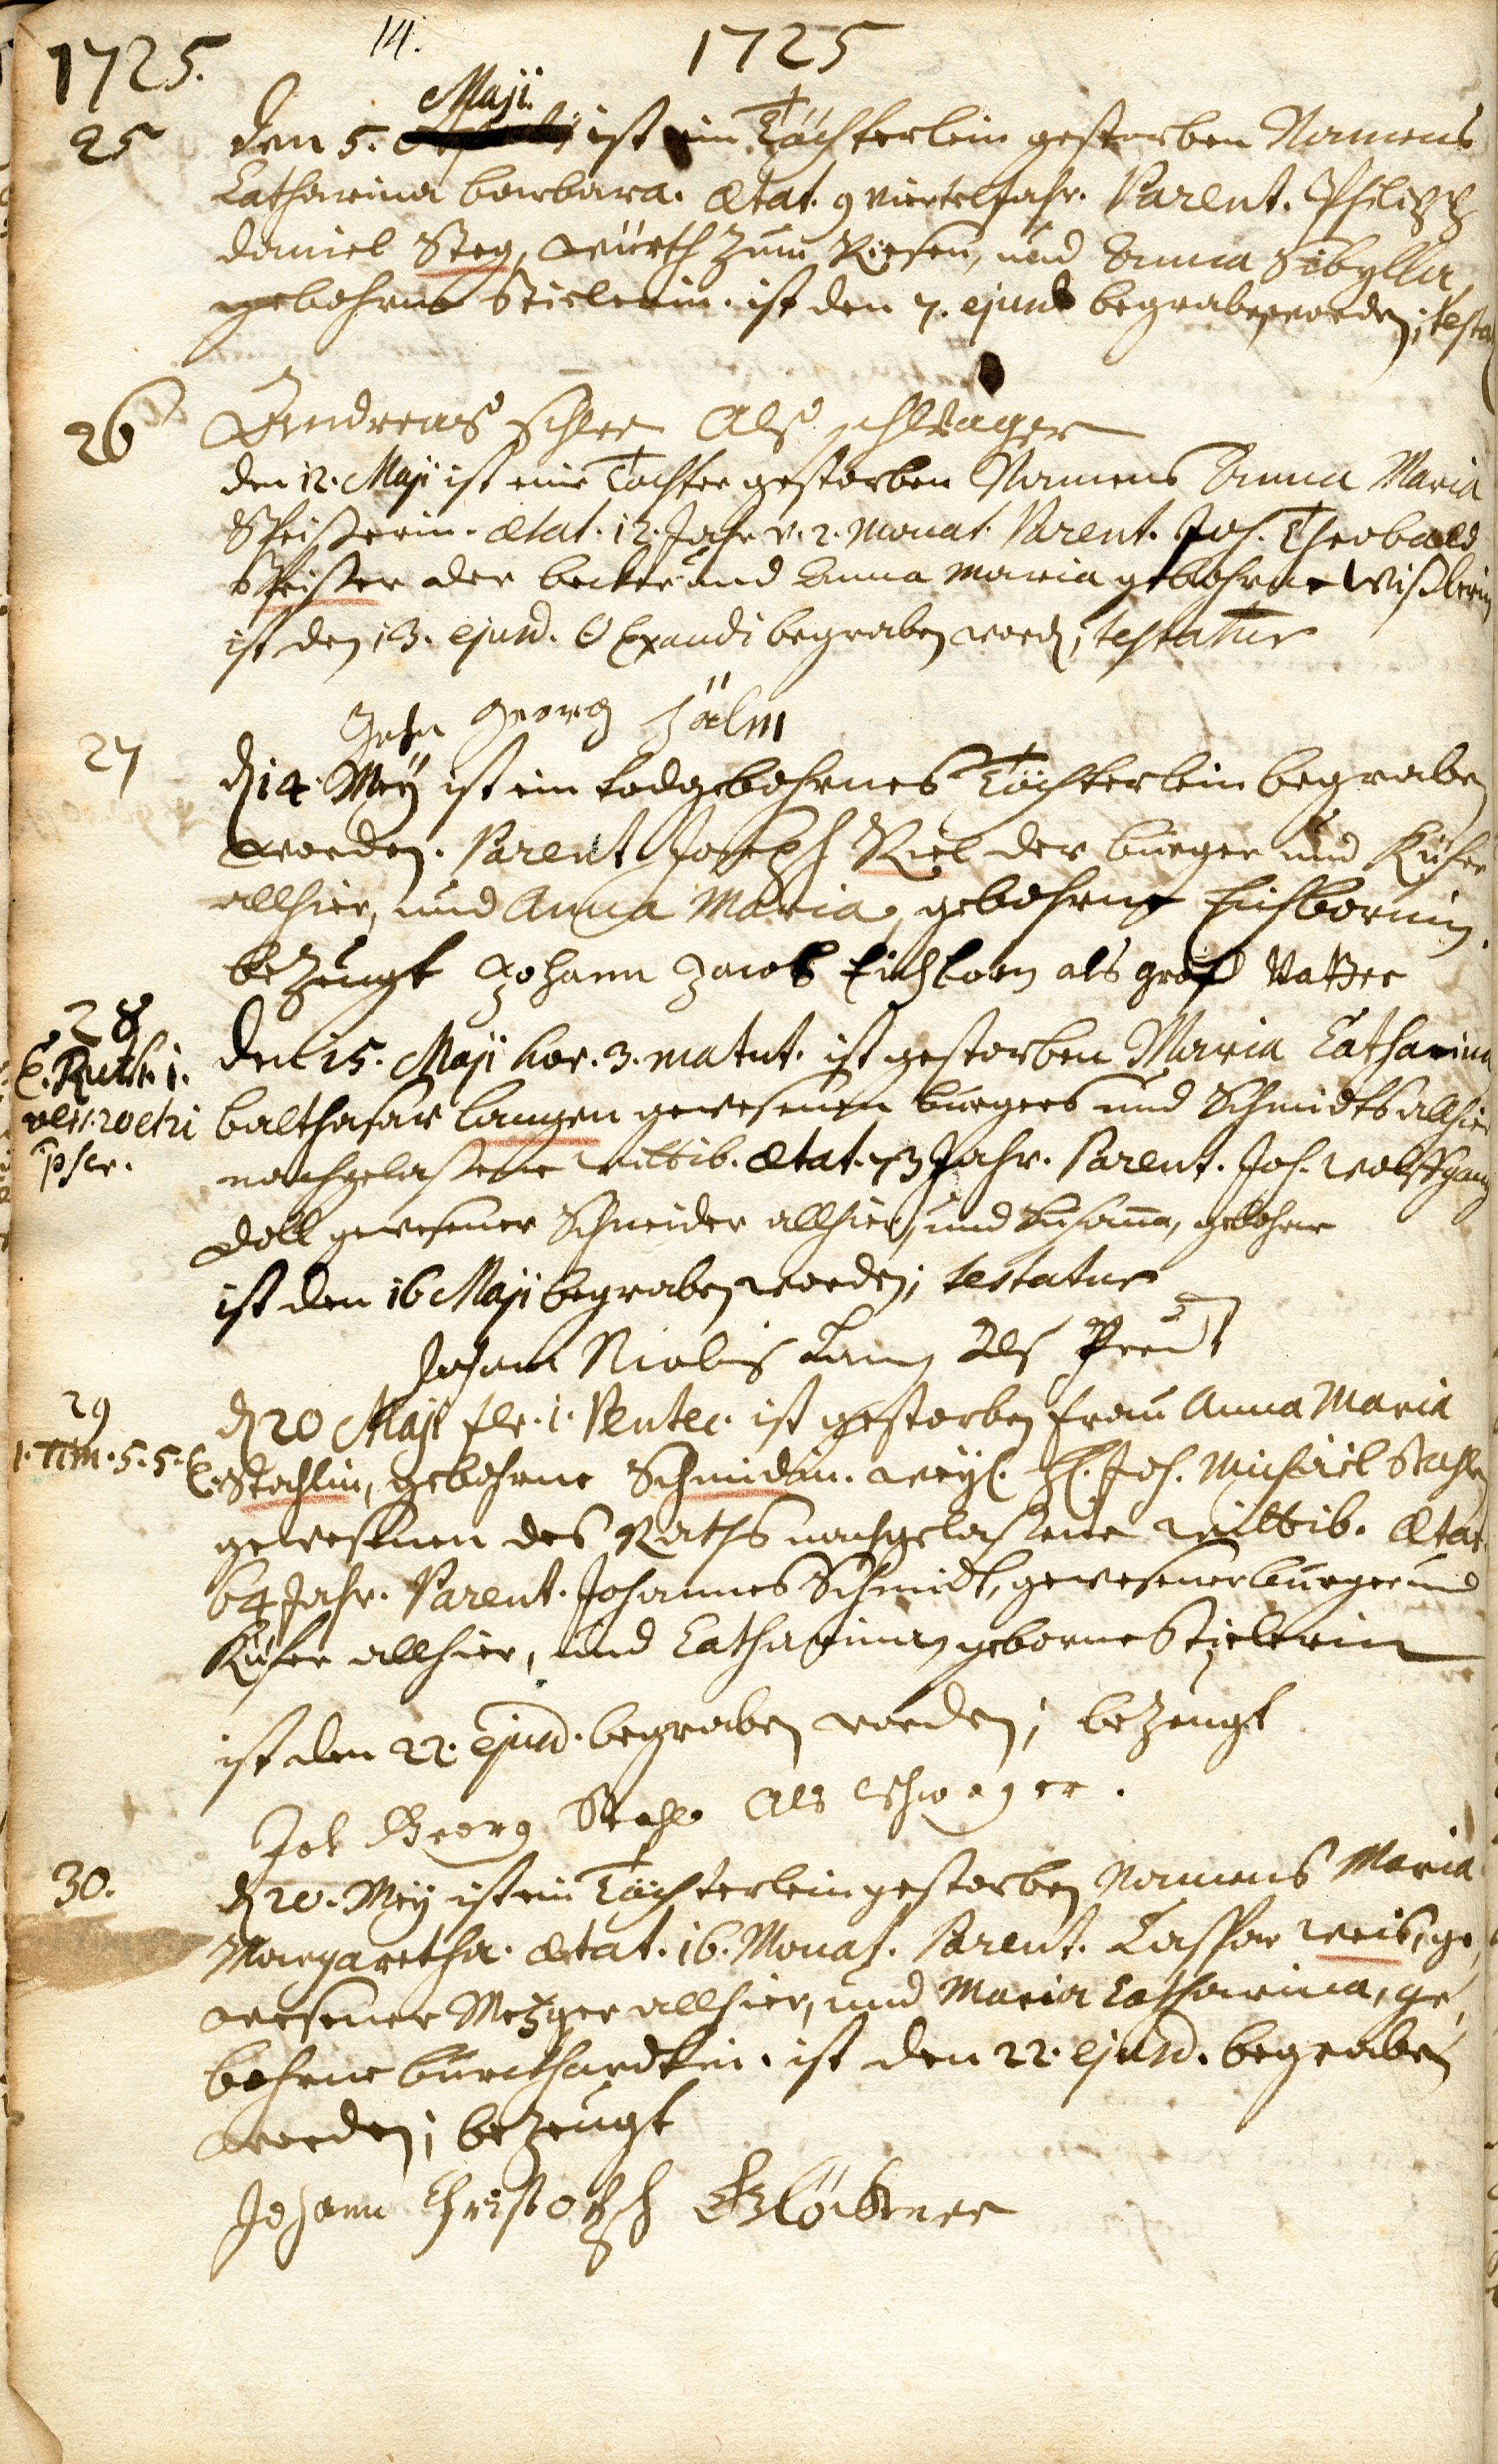 1725. 14. 1725
Maji.
25 den 5. ist ein Töchterlein gestorben Namens
Catharina barbara. Ætat. 9 viertelJahr. Parent. Philipp
daniel Steg, Würth zum Riesen, und Anna Sibylla,
gebohrne Stielerin. ist den 7. ejusd begraben worden; testa
26 Andreas schlee Alß schwager
den 12. Maji ist eine Tochter gestorben Namens Anna Maria
Speißerin. Ætat. 12. Jahr v. 2. Monat. Parent. Joh. Theobald
Speißer der becker und Anna Maria gebohrne Wißlerin
ist den 13. ejusd. Exaudi begraben word; testatur
Johan Georg
27 d 14. Meÿ ist ein todgebohrnes Töchterlein begraben
worden. Parent Joseph Riel der burger und Küfer
allhier, und Anna Maria, gebohrne Eichbornin.
bezeugt Johann Jacob Eichborn als groß Vatter
28 den 15. Maji hor. 3. matut. ist gestorben Maria Catharina
C. Ruth. 1. balthasar Langen gewesenen burgers und Schmidts allhier
v. 20 et 21 nachgelaßene Wittib. Ætat. 73 Jahr. Parent. Joh. Wolffgang
Doll gewesener Schneider allhier, und Susanna, gebohrne
ist den 16 Maji begraben worden; testatur
Johann Lang Als
29 d 20 Maji fer. 1. Pentec. ist gestorben Frau Anna Maria
1. Tim. 5. 5. Stahlin, gebohrne Schmidin. weyl. H. Joh. Michael Stahlen
gewesenen des Raths nachgelaßene Wittib. Ætat.
64 Jahr. Parent. Johannes Schmidt, gewesener burger und
Küfer allhier, und Catharina gebohrne Stielerin
ist den 22. ejusd. begraben worden; bezeugt
Joh Georg Stahl Als schwager.
30. d 20. Meÿ ist ein Töchterlein gestorben Namens Maria
Margaretha. Ætat. 16. Monat. Parent. Caspar Weis, ge-
wesener Metzger allhier, und Maria Catharina, ge-
bohrne burckhardtin. ist den 22. ejusd. begraben
worden; bezeugt
Johann Christoph Glöckner